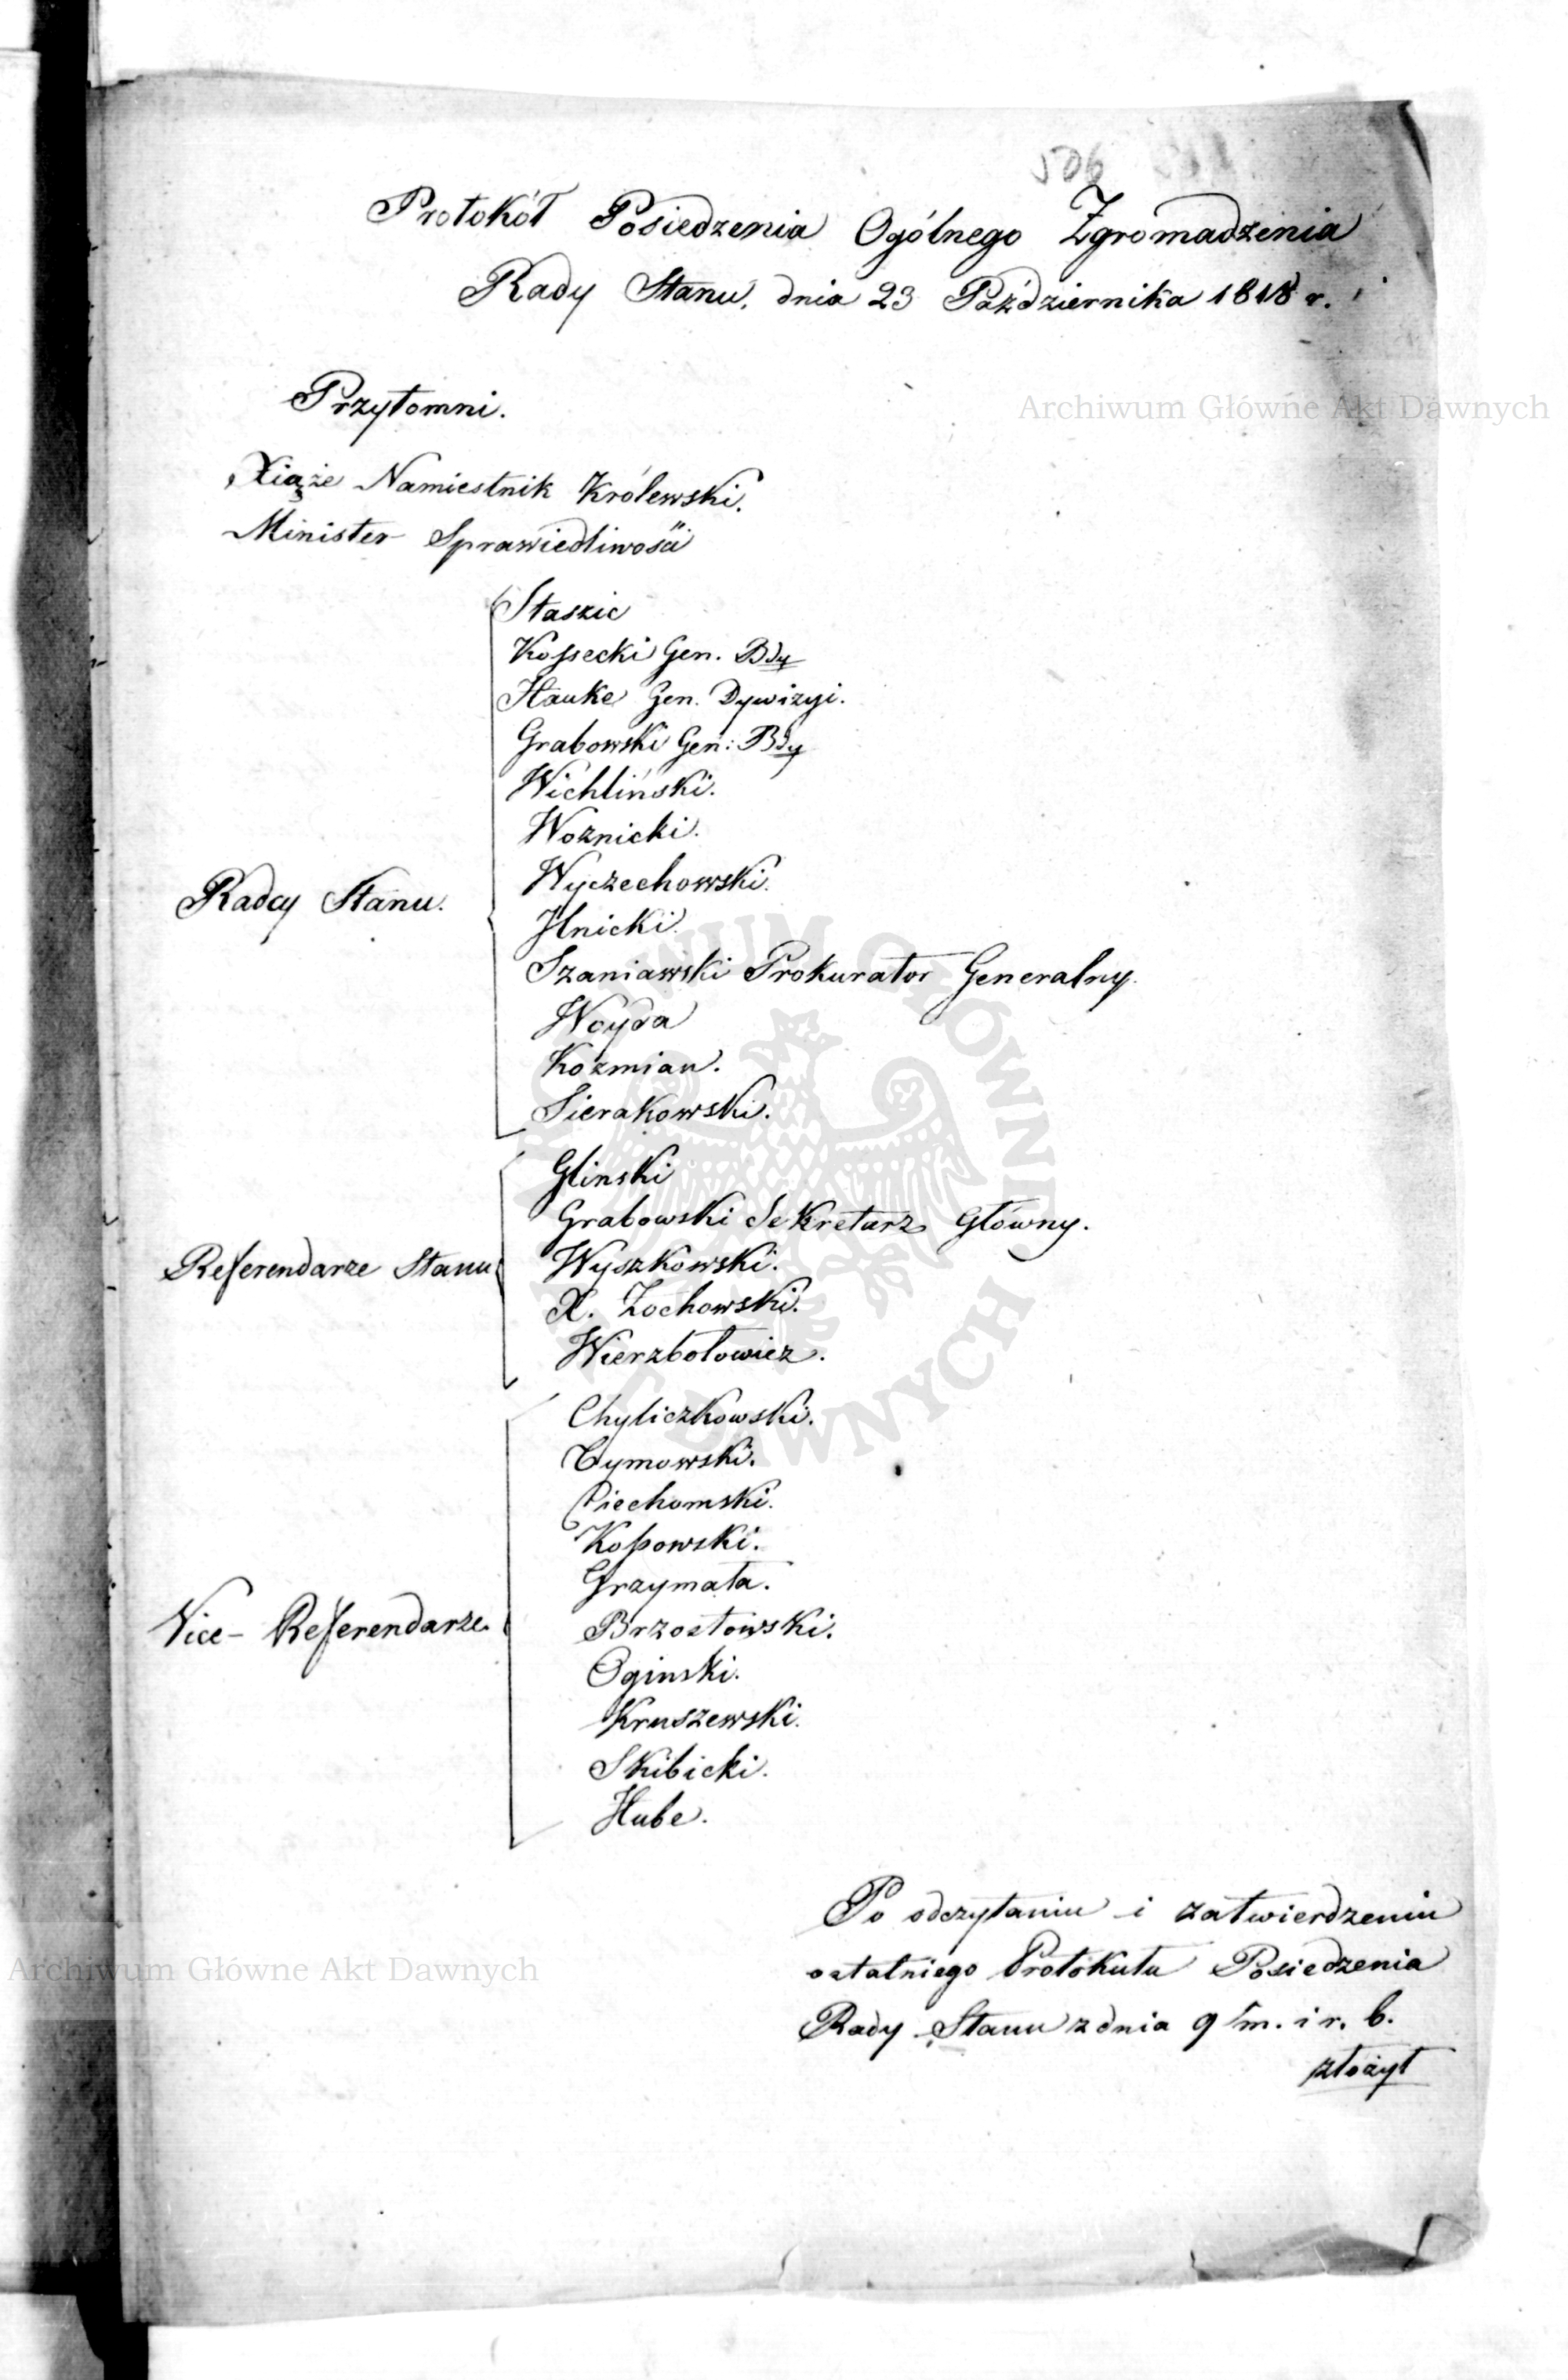 506
Protokół Posiedzenia Ogólnego Zgromadzenia
Rady Stanu, dnia 23 Października 1818 r.
Przytomni.
Archiwum Główne Akt Dawnych
Xiąże Namiestnik Królewski.
Minister Sprawiedliwości
Staszic
Kossecki Gen. Bdy
Hauke Gen. Dywizyi.
Grabowski Gen: Bdy
Wichliński.
Woznicki.
Wyczechowski.
Radcy Stanu.
Ilnicki.
Szaniawski Prokurator Generalny.
Woyda
Kozmian.
Sierakowski.
Glinski
Grabowski Sekretarz Główny.
Referendarze Stanu
Wyszkowski.
X. Zochowski.
Wierzbołowicz.
Chyliczkowski.
Tymowski.
Ciechomski.
Kossowski.
Grzymała.
Vice-Referendarze.
Brzostowski.
Oginski.
Kruszewski.
Skibicki.
Hube.
Po odczytaniu i zatwierdzeniu
ostatniego Protokułu Posiedzenia
Archiwum Główne Akt Dawnych
Rady Stanu z dnia 9 m. i r. b.
złożył
ARCHIWUM GŁÓWNE AKT DAWNYCH